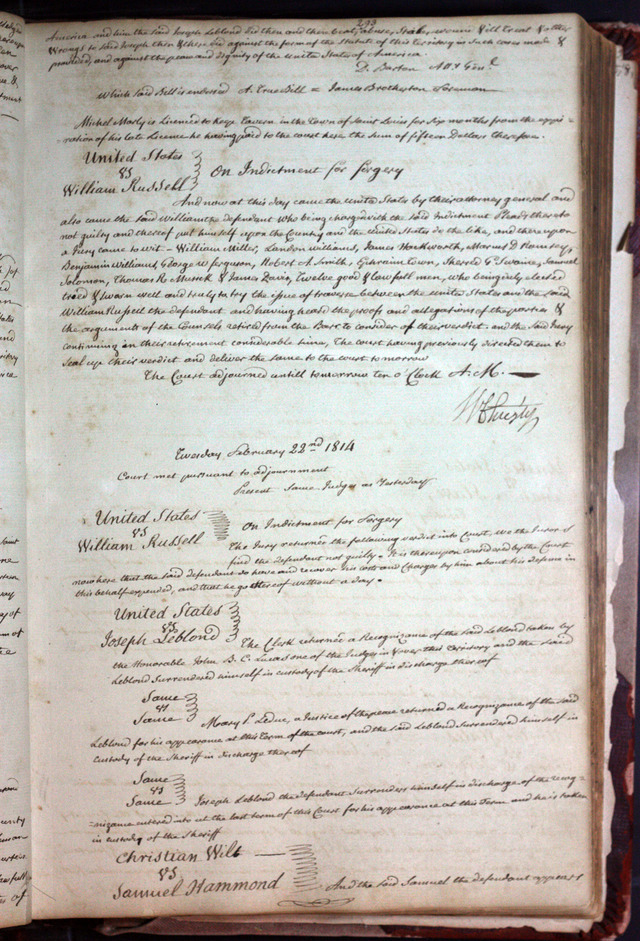 299
America and him the said Joseph Leblond did then and there beat, abuse, stab, wound & ill treat & other
Wrongs to said Joseph then & there did against the form of the Statute of this territory in Such cases made &
provided, and against the peace and dignity of the United States of America
D. Barton Att Genl
Which Said Bill is endorsed A True Bill = James Brotherton Foreman
Michel Marly is Licenced to keep tavern in the Town of Saint Louis for Six months from the expi=
ration of his late Licence he having paid to the court here the Sum of fifteen Dollars therefore.
United States
vs On Indictment for forgery
William Russell
And now at this day came the United States by their attorney general and
also came the Said William the defendant who being charged with the said Indictment Pleads thereto
not guilty and thereof put himself upon the Country and the United States do the like, and thereupon
a Jury came to wit – William Miller, Larkin Williams, James Hawkworth, Marcus D Ramsey,
Benjamin Williams, George W Ferguson, Robert A Smith, Ephraim Town, Samuel
Solomon, Thomas R. Musick & James Davis, Twelve good & lawfull men, who being duly elected
tried & sworn well and truly to try the issue of traverse between the United States and the said
William Russell the defendant and having heard the proof and allegations of the parties &
the arguments of the Counsels retired from the Bar to consider of their verdict and the said Jury
continuing in their retirement considerable time, The court having previously directed them to
Seal up their verdict and deliver the same to the court tomorrow
The Court adjourned untill tomorrow ten o'Clock A.M.
Tuesday February 22nd 1814
Court met pursuant to adjournment
Present Same Judges as Yesterday
United States
vs On Indictment for forgery
William Russell
The Jury returned the following verdict into Court, we the Jurors
find the defendant not guilty. It is thereupon considered by the Court
now here that the said defendant do have and recover his costs and Charges by him about his defence in
this behalf expended, and that he go thereof without a day.
United States
vs
Joseph Leblond The Clerk returned a Recognizance of the said Leblond taken by
the Honorable John B. C. Lucas one of the Judges in & over this Territory and the said
Leblond Surrendered himself in custody of the Sheriff in discharge thereof
Same
vs
Same Mary P. Leduc, a Justice of the peace returned a Recognizance of the said
Leblond for his appearance at this Term of the court, and the said Leblond Surrendered himself in
Custody of the Sheriff in discharge thereof
Same
vs
Same Joseph Leblond the defendant Surrenders himself in discharge of the recog-
nizance entered into at the last term of this Court for his appearance at this Term and he is taken
in custody of the Sheriff
Christian Wilt
vs
Samuel Hammond And the said Samuel the defendant appears